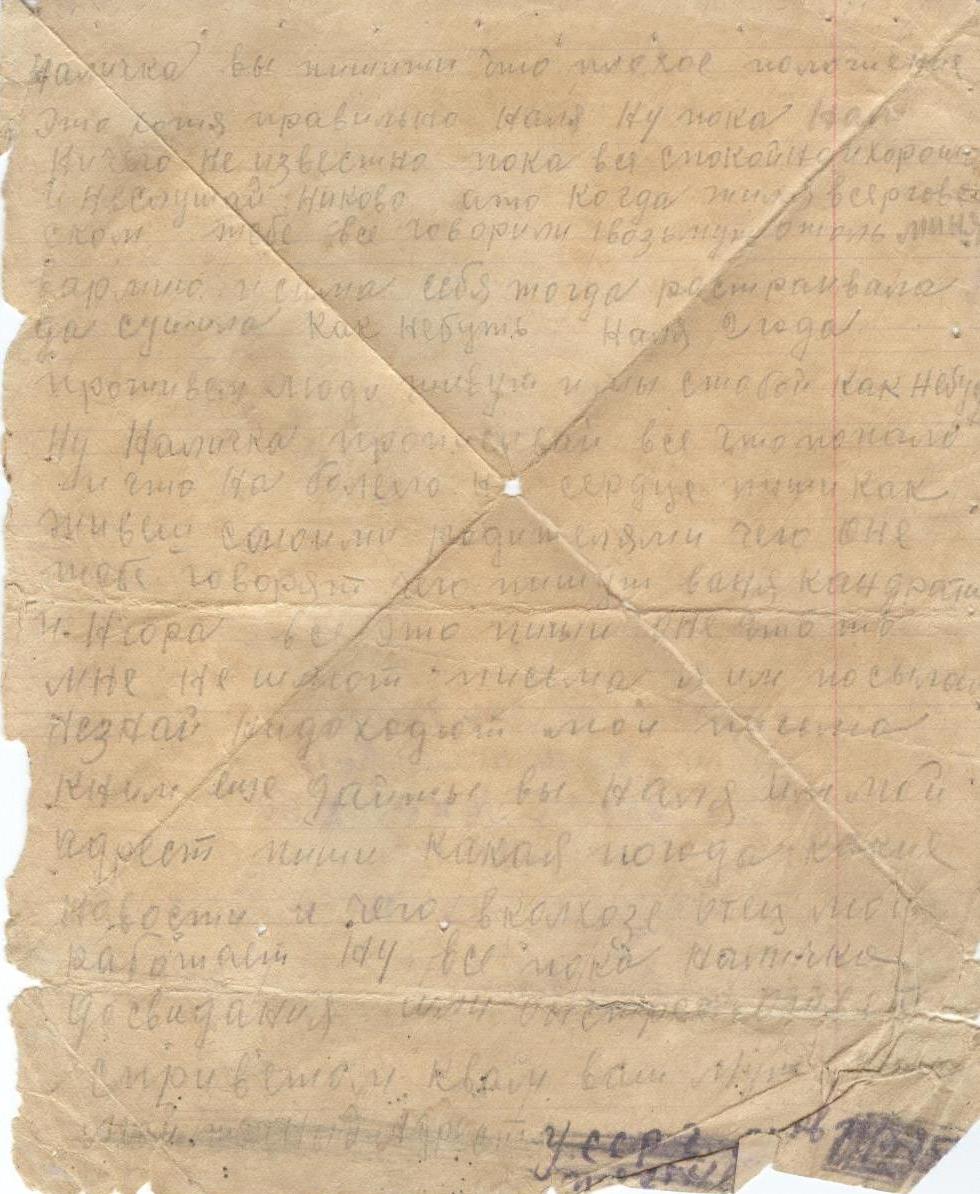 Наличка вы пишити что плохое положение
Это хотя правильно Наля Ну пока Нам
Ничего не известно пока все спокойно и хорошо
и неслушай никово ато когда жила всерговс
ском тебе все говорили возьмут отоль миня
вармию и сама себя тогда растраивала
да сушила как небуть Наля 2 года
проживем люди живут и мы стобой как небу
Ну Наличка прописывай все чтопонало
и что на болело н сердце пиши как
Живеш смоими родителями чего оне
тебе говорят что пишут ваня кандрат
и Нюра все это пиши оне что то
мне не шлют письма я им посылал
незнай недоходют мои письма
Кним еще дайте вы Наля им мой
Адрест пиши какая погода какие
новости и чего вколхозе отец мой
работает Ну все пока Наличка
досвидания шли быстрей ответ
сприветом квам ваш муж
Адрест УССР г